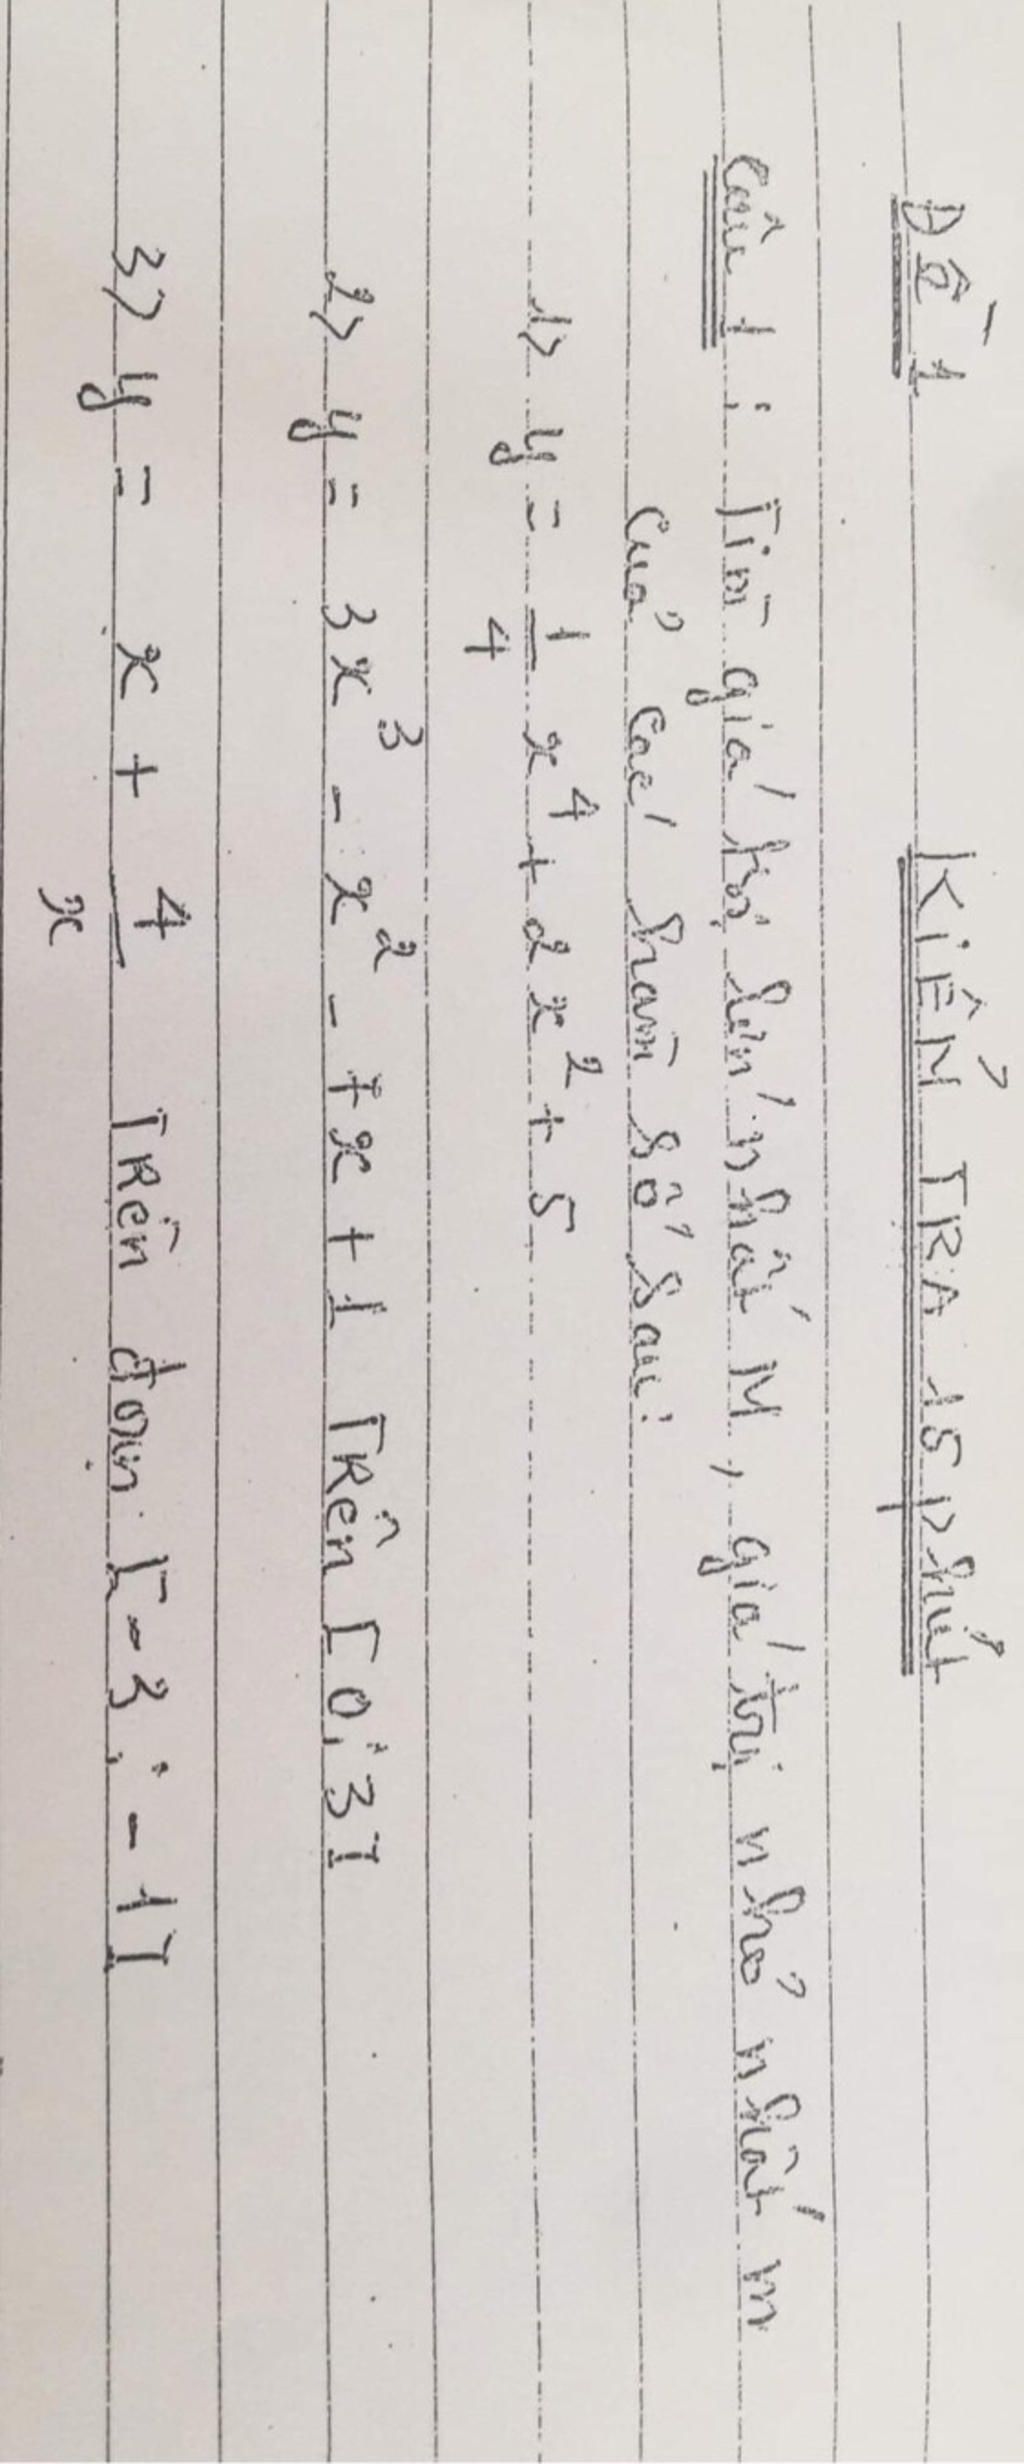 ĐỀ 1 KIỂM TRA 15 phút
Câu 1 : Tìm giá trị lớn nhất M, giá trị nhỏ nhất m
Của các hàm số sau:
1> y = 1/4 x⁴ + 2x² + 5
2> y = 3x³ - x² - 7x + 1 TRên [0; 3]
3> y = x + 4/x TRên đoạn [-3; -1]